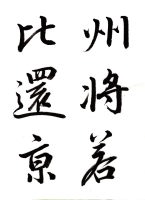 州將若
比還京